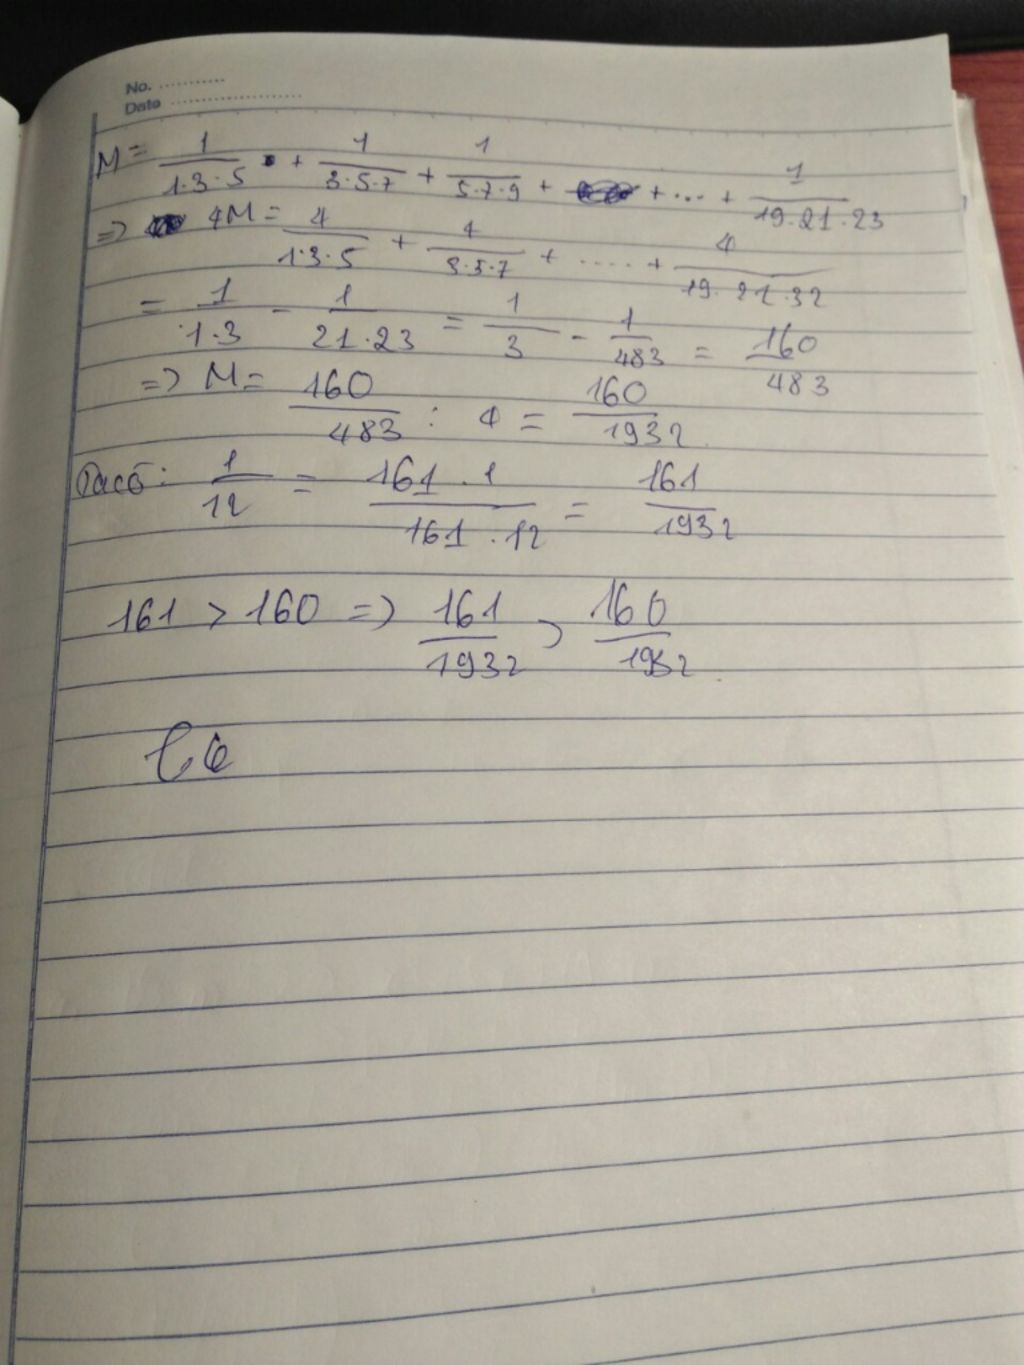 No. ............
Date ......................
M = 1/(1·3·5) + 1/(3·5·7) + 1/(5·7·9) + + ... + 1/(19·21·23)
=> 4M = 4/(1·3·5) + 4/(3·5·7) + ..... + 4/(19·21·32)
= 1/(1·3) - 1/(21·23) = 1/3 - 1/483 = 160/483
=> M = 160/483 : 4 = 160/1932
Ta có: 1/12 = (161·1)/(161·12) = 161/1932
161 > 160 => 161/1932 > 160/1932